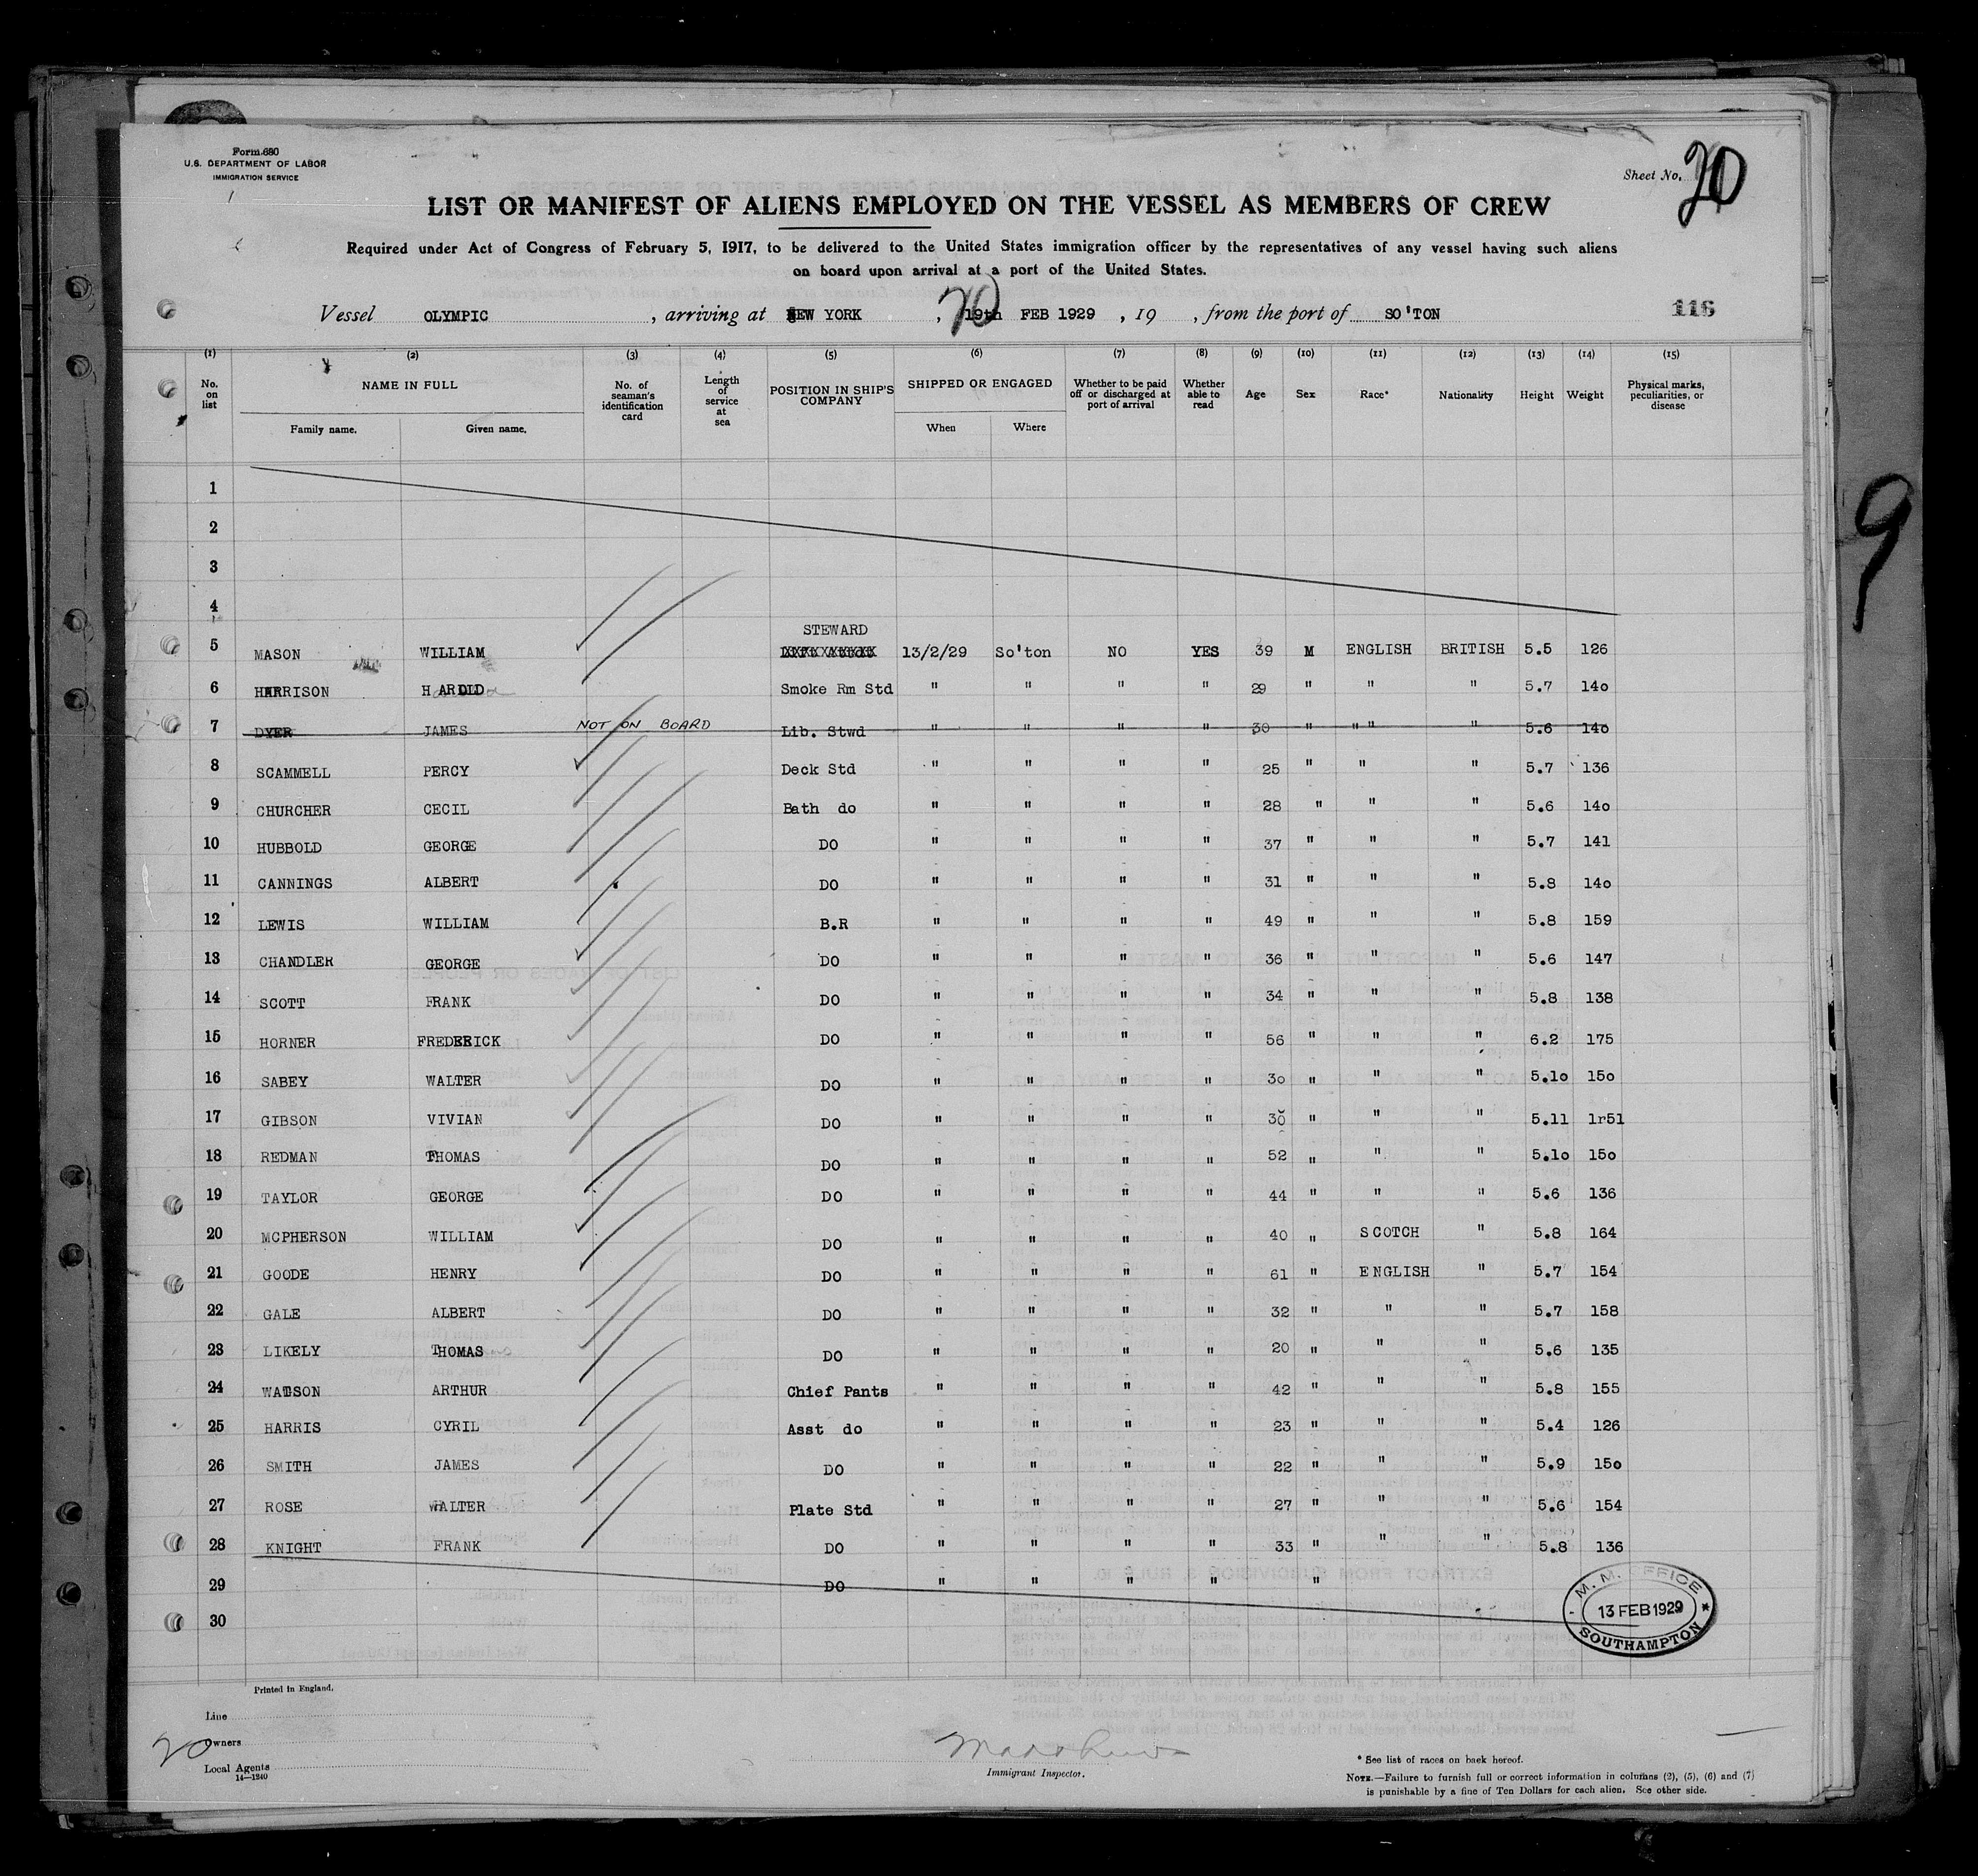 Form 680
U.S. DEPARTMENT OF LABOR
IMMIGRATION SERVICE
Sheet No. 20
LIST OR MANIFEST OF ALIENS EMPLOYED ON THE VESSEL AS MEMBERS OF CREW
Required under Act of Congress of February 5, 1917, to be delivered to the United States immigration officer by the representatives of any vessel having such aliens
on board upon arrival at a port of the United States.
Vessel OLYMPIC, arriving at NEW YORK, 20 19th FEB 1929, 19 , from the port of SO'TON
116
(1) (2) (3) (4) (5) (6) (7) (8) (9) (10) (11) (12) (13) (14) (15)
No. on list NAME IN FULL Family name. Given name. No. of seaman's identification card Length of service at sea POSITION IN SHIP'S COMPANY SHIPPED OR ENGAGED When Where Whether to be paid off or discharged at port of arrival Whether able to read Age Sex Race* Nationality Height Weight Physical marks, peculiarities, or disease
1
2
3
4
STEWARD
5 MASON WILLIAM 13/2/29 So'ton NO YES 39 M ENGLISH BRITISH 5.5 126
6 HARRISON HAROLD Smoke Rm Std " " " " 29 " " " 5.7 140
7 DYER JAMES NOT ON BOARD Lib. Stwd " " " " 30 " " " " 5.6 140
8 SCAMMELL PERCY Deck Std " " " " 25 " " " 5.7 136
9 CHURCHER CECIL Bath do " " " " 28 " " " 5.6 140
10 HUBBOLD GEORGE DO " " " " 37 " " " 5.7 141
11 CANNINGS ALBERT DO " " " " 31 " " " 5.8 140
12 LEWIS WILLIAM B.R " " " " 49 " " " 5.8 159
13 CHANDLER GEORGE DO " " " " 36 " " " 5.6 147
14 SCOTT FRANK DO " " " " 34 " " " 5.8 138
15 HORNER FREDERICK DO " " " " 56 " " " 6.2 175
16 SABEY WALTER DO " " " " 30 " " " 5.10 150
17 GIBSON VIVIAN DO " " " " 30 " " " 5.11 1r51
18 REDMAN THOMAS DO " " " " 52 " " " 5.10 150
19 TAYLOR GEORGE DO " " " " 44 " " " 5.6 136
20 MCPHERSON WILLIAM DO " " " " 40 " SCOTCH " 5.8 164
21 GOODE HENRY DO " " " " 61 " ENGLISH " 5.7 154
22 GALE ALBERT DO " " " " 32 " " " 5.7 158
23 LIKELY THOMAS DO " " " " 20 " " " 5.6 135
24 WATSON ARTHUR Chief Pants " " " " 42 " " " 5.8 155
25 HARRIS CYRIL Asst do " " " " 23 " " " 5.4 126
26 SMITH JAMES DO " " " " 22 " " " 5.9 150
27 ROSE WALTER Plate Std " " " " 27 " " " 5.6 154
28 KNIGHT FRANK DO " " " " 33 " " " 5.8 136
29 DO " " " " "
30
M. M. OFFICE
13 FEB 1929
SOUTHAMPTON
9
Printed in England.
Line
20
Owners
Local Agents
14—1240
Immigrant Inspector.
* See list of races on back hereof.
NOTE.—Failure to furnish full or correct information in columns (2), (5), (6) and (7)
is punishable by a fine of Ten Dollars for each alien. See other side.